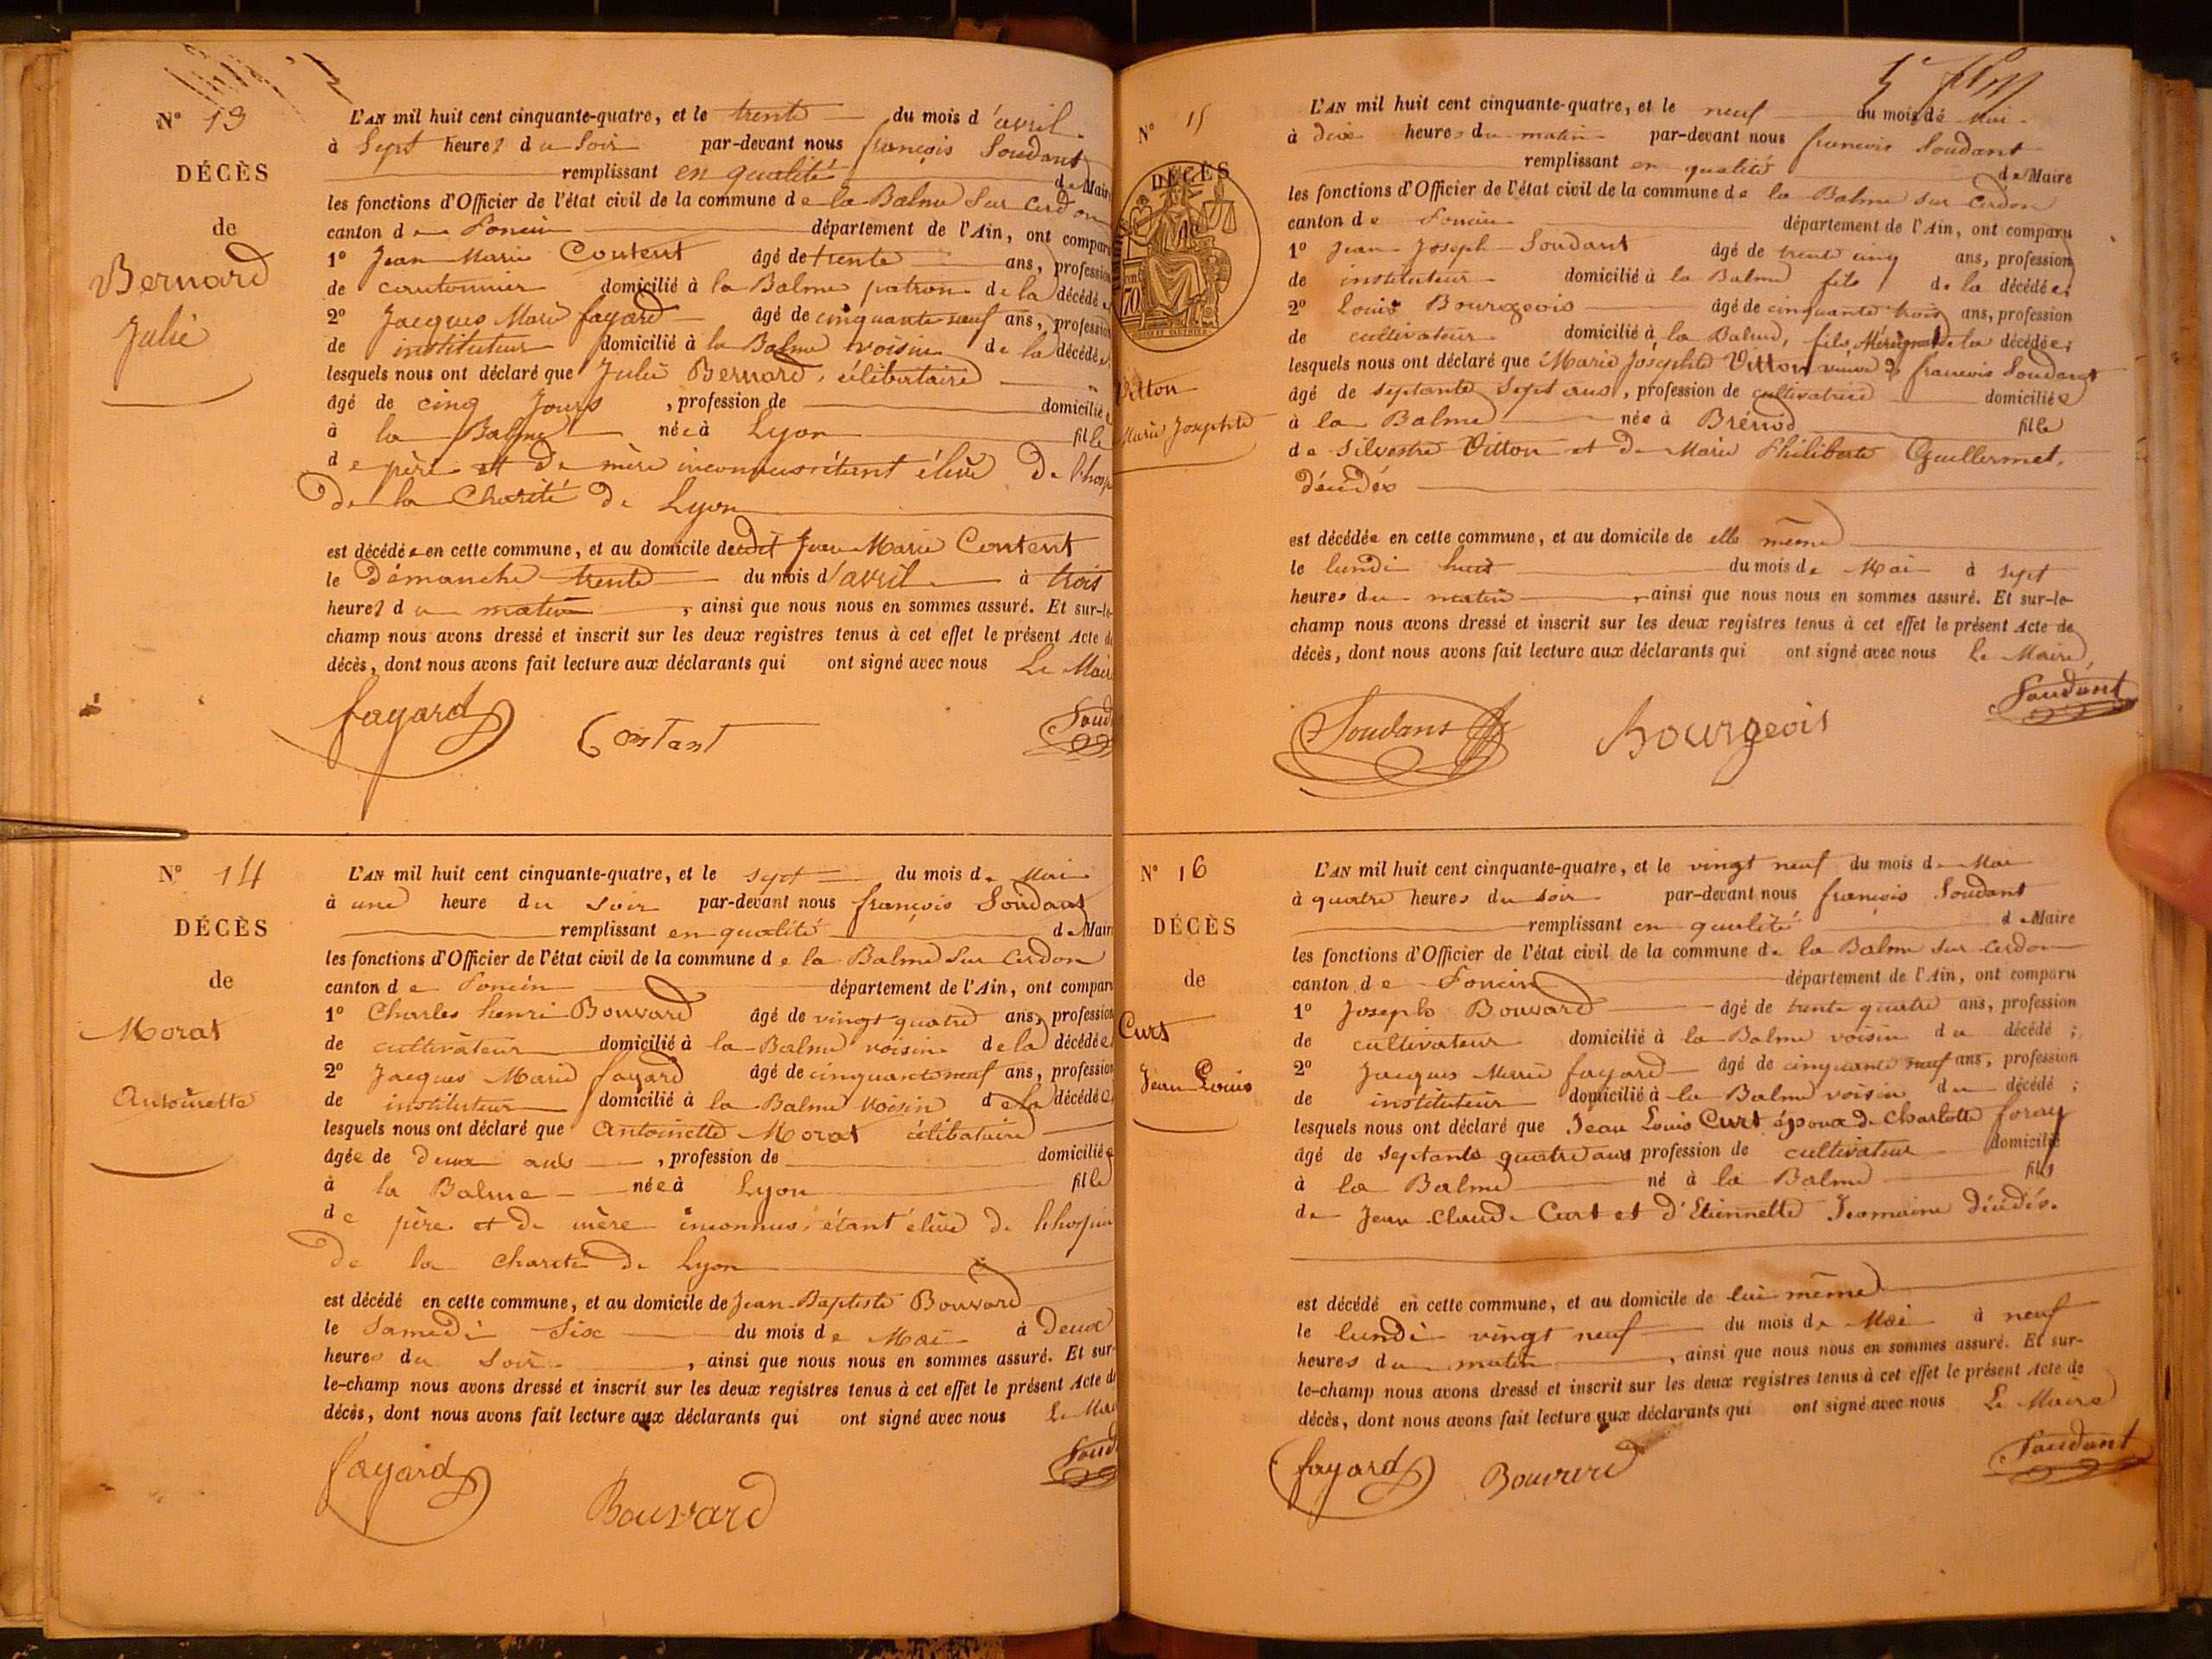 N° 13
DÉCÈS
de
Bernard
Julie
L'AN mil huit cent cinquante-quatre, et le trente du mois d'avril
à Sept heures du Soir par-devant nous françois Soudant
remplissant en qualité de Maire
les fonctions d'Officier de l'état civil de la commune de la Balme Sur Cerdon
canton de Poncin département de l'Ain, ont compar
1° Jean Marie Content âgé de trente ans, profession
de cantonnier domicilié à la Balme patron de la décédée
2° Jacques Marie fayard âgé de cinquante neuf ans, profession
de instituteur domicilié à la Balme voisin de la décédée
lesquels nous ont déclaré que Julie Bernard, célibataire
âgé de cinq Jours, profession de domicilié
à la Balme née à Lyon fille
de père et de mère inconnus, étant élève De l'hosp
De la Charité De Lyon
est décédée en cette commune, et au domicile dudit Jean Marie Content
le Démanche trente du mois d'avril à trois
heures du matin, ainsi que nous nous en sommes assuré. Et sur-le-
champ nous avons dressé et inscrit sur les deux registres tenus à cet effet le présent Acte de
décès, dont nous avons fait lecture aux déclarants qui ont signé avec nous Le Mai
fayard Contant Soud
N° 14
DÉCÈS
de
Morat
Antoinette
L'AN mil huit cent cinquante-quatre, et le sept du mois de Mai
à une heure du soir par-devant nous françois Soudant
remplissant en qualité de Mair
les fonctions d'Officier de l'état civil de la commune de la Balme Sur Cerdon
canton de Poncin département de l'Ain, ont compar
1° Charles henri Bouvard âgé de vingt quatre ans, profession
de cultivateur domicilié à la Balme voisin de la décédée
2° Jacques Marie fayard âgé de cinquante neuf ans, profession
de instituteur domicilié à la Balme voisin de la décédée
lesquels nous ont déclaré que Antoinette Morat célibataire
âgée de Deux ans, profession de domiciliée
à la Balme née à Lyon fille
de père et de mère inconnus, étant élève de l'hospice
De la Charité De Lyon
est décédé en cette commune, et au domicile de Jean-Baptiste Bouvard
le Samedi Six du mois de Mai à Deux
heures du Soir, ainsi que nous nous en sommes assuré. Et sur-
le-champ nous avons dressé et inscrit sur les deux registres tenus à cet effet le présent Acte de
décès, dont nous avons fait lecture aux déclarants qui ont signé avec nous Le Mai
fayard Bouvard Soud
N° 15
DÉCÈS
de
Vitton
Marie Josephte
L'AN mil huit cent cinquante-quatre, et le neuf du mois de Mai
à dix heures du matin par-devant nous françois Soudant
remplissant en qualité de Maire
les fonctions d'Officier de l'état civil de la commune de la Balme sur Cerdon
canton de Poncin département de l'Ain, ont comparu
1° Jean Joseph Soudant âgé de trente cinq ans, profession
de instituteur domicilié à la Balme fils de la décédée;
2° Louis Bourgeois âgé de cinquante trois ans, profession
de cultivateur domicilié à la Balme, de la décédée;
lesquels nous ont déclaré que Marie Josephte Vitton veuve de françois Soudant
âgé de septante sept ans, profession de cultivatrice domiciliée
à la Balme née à Brénod fille
de Silvestre Vitton et De Marie Philiberte Guillermet,
décédés
est décédée en cette commune, et au domicile de elle même
le lundi huit du mois de Mai à sept
heures du matin, ainsi que nous nous en sommes assuré. Et sur-le-
champ nous avons dressé et inscrit sur les deux registres tenus à cet effet le présent Acte de
décès, dont nous avons fait lecture aux déclarants qui ont signé avec nous Le Maire,
Soudans Bourgeois Soudant
N° 16
DÉCÈS
de
Curt
Jean Louis
L'AN mil huit cent cinquante-quatre, et le vingt neuf du mois de Mai
à quatre heures du soir par-devant nous françois Soudant
remplissant en qualité de Maire
les fonctions d'Officier de l'état civil de la commune de la Balme sur Cerdon
canton de Poncin département de l'Ain, ont comparu
1° Joseph Bouvard âgé de trente quatre ans, profession
de cultivateur domicilié à la Balme voisin du décédé;
2° Jacques Marie fayard âgé de cinquante neuf ans, profession
de instituteur domicilié à la Balme voisin du décédé;
lesquels nous ont déclaré que Jean Louis Curt époux de Charlotte foray
âgé de septante quatre ans profession de cultivateur domicilié
à la Balme né à la Balme fils
de Jean Claude Curt et d'Etiennette Jeomaine Décédés.
est décédé en cette commune, et au domicile de lui même
le lundi vingt neuf du mois de Mai à neuf
heures du matin, ainsi que nous nous en sommes assuré. Et sur-
le-champ nous avons dressé et inscrit sur les deux registres tenus à cet effet le présent Acte de
décès, dont nous avons fait lecture aux déclarants qui ont signé avec nous Le Maire
fayard Bouvard Soudant